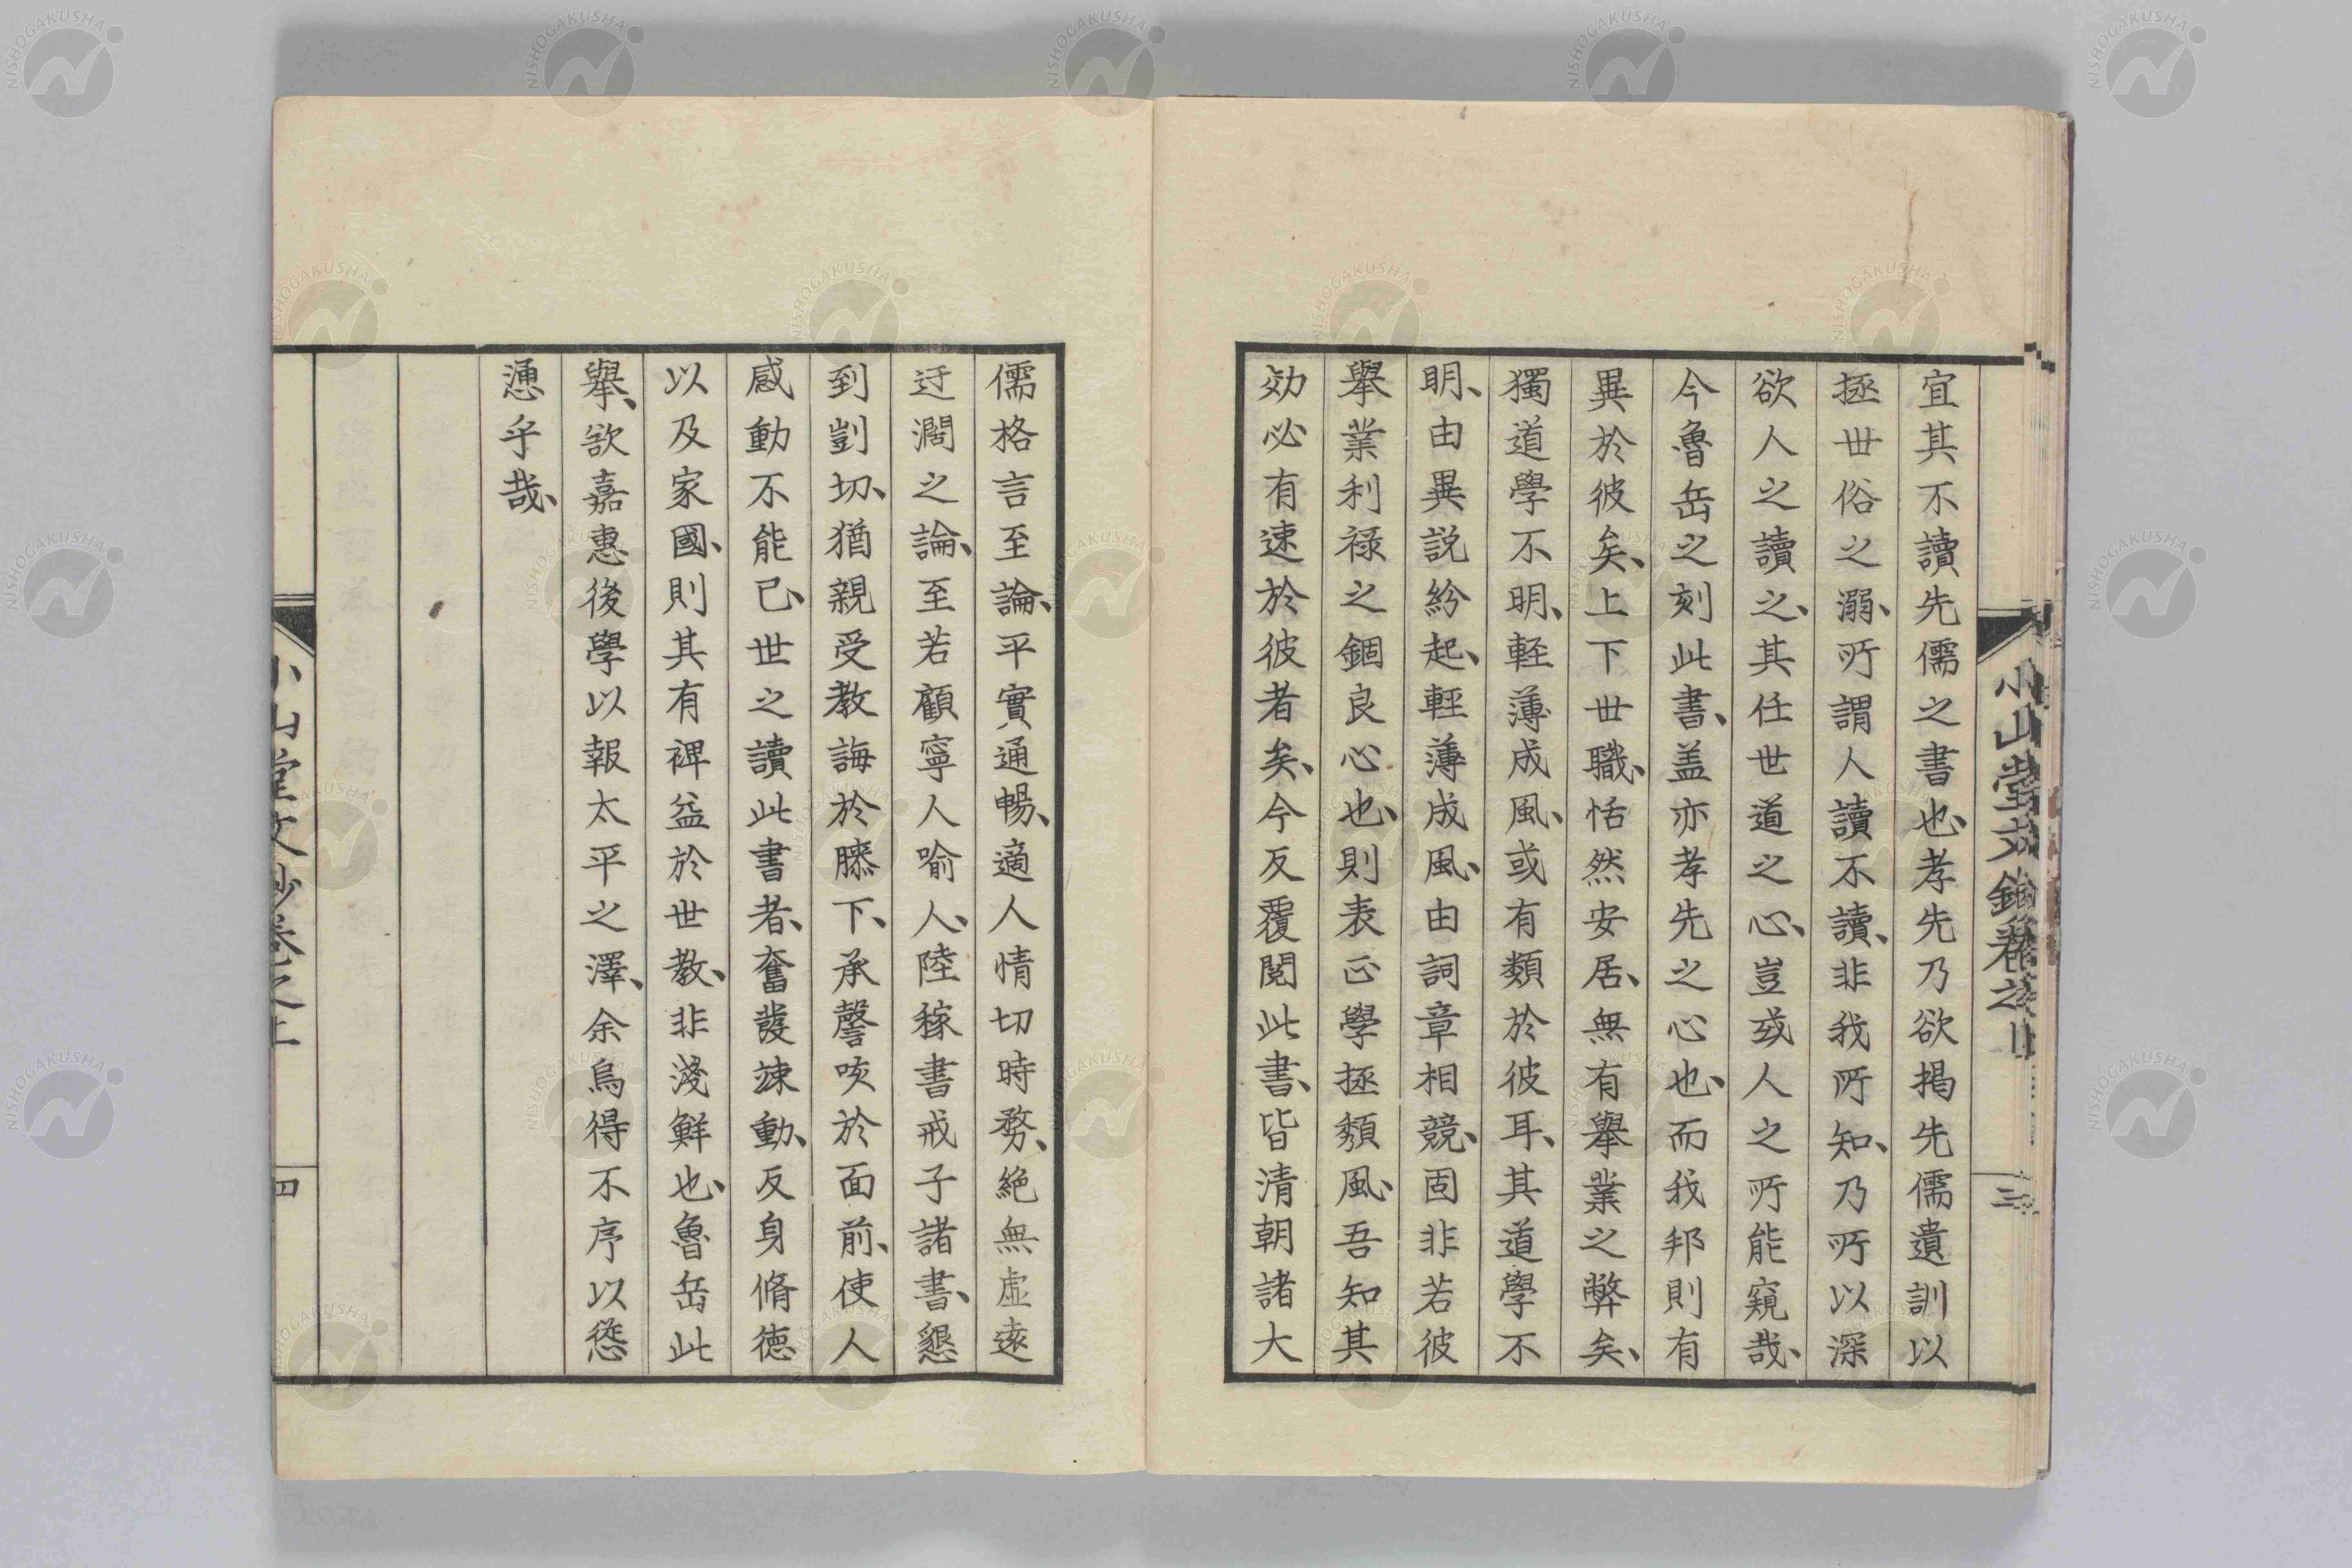 小山堂文鈔卷之上
三
宜其不讀先儒之書也、孝先乃欲揭先儒遺訓以
拯世俗之溺、所謂人讀不讀、非我所知、乃所以深
欲人之讀之、其任世道之心、豈或人之所能窺哉、
今魯岳之刻此書、盖亦孝先之心也、而我邦則有
異於彼矣、上下世職、恬然安居、無有擧業之弊矣、
獨道學不明、輕薄成風、或有類於彼耳、其道學不
明、由異説紛起、輕薄成風、由詞章相競、固非若彼
擧業利祿之錮良心也、則表正學拯頽風、吾知其
効必有速於彼者矣、今反覆閲此書、皆清朝諸大
儒格言至論、平實通暢、適人情切時務、絶無虛遠
迂濶之論、至若顧寧人喻人、陸稼書戒子諸書、懇
到剴切、猶親受教誨於膝下、承謦咳於面前、使人
感動不能已、世之讀此書者、奮發竦動、反身脩徳
以及家國、則其有裨益於世教、非淺鮮也、魯岳此
擧、欲嘉惠後學以報太平之澤、余烏得不序以慫
慂乎哉、
小山堂文鈔卷之上
四
NISHOGAKUSHA